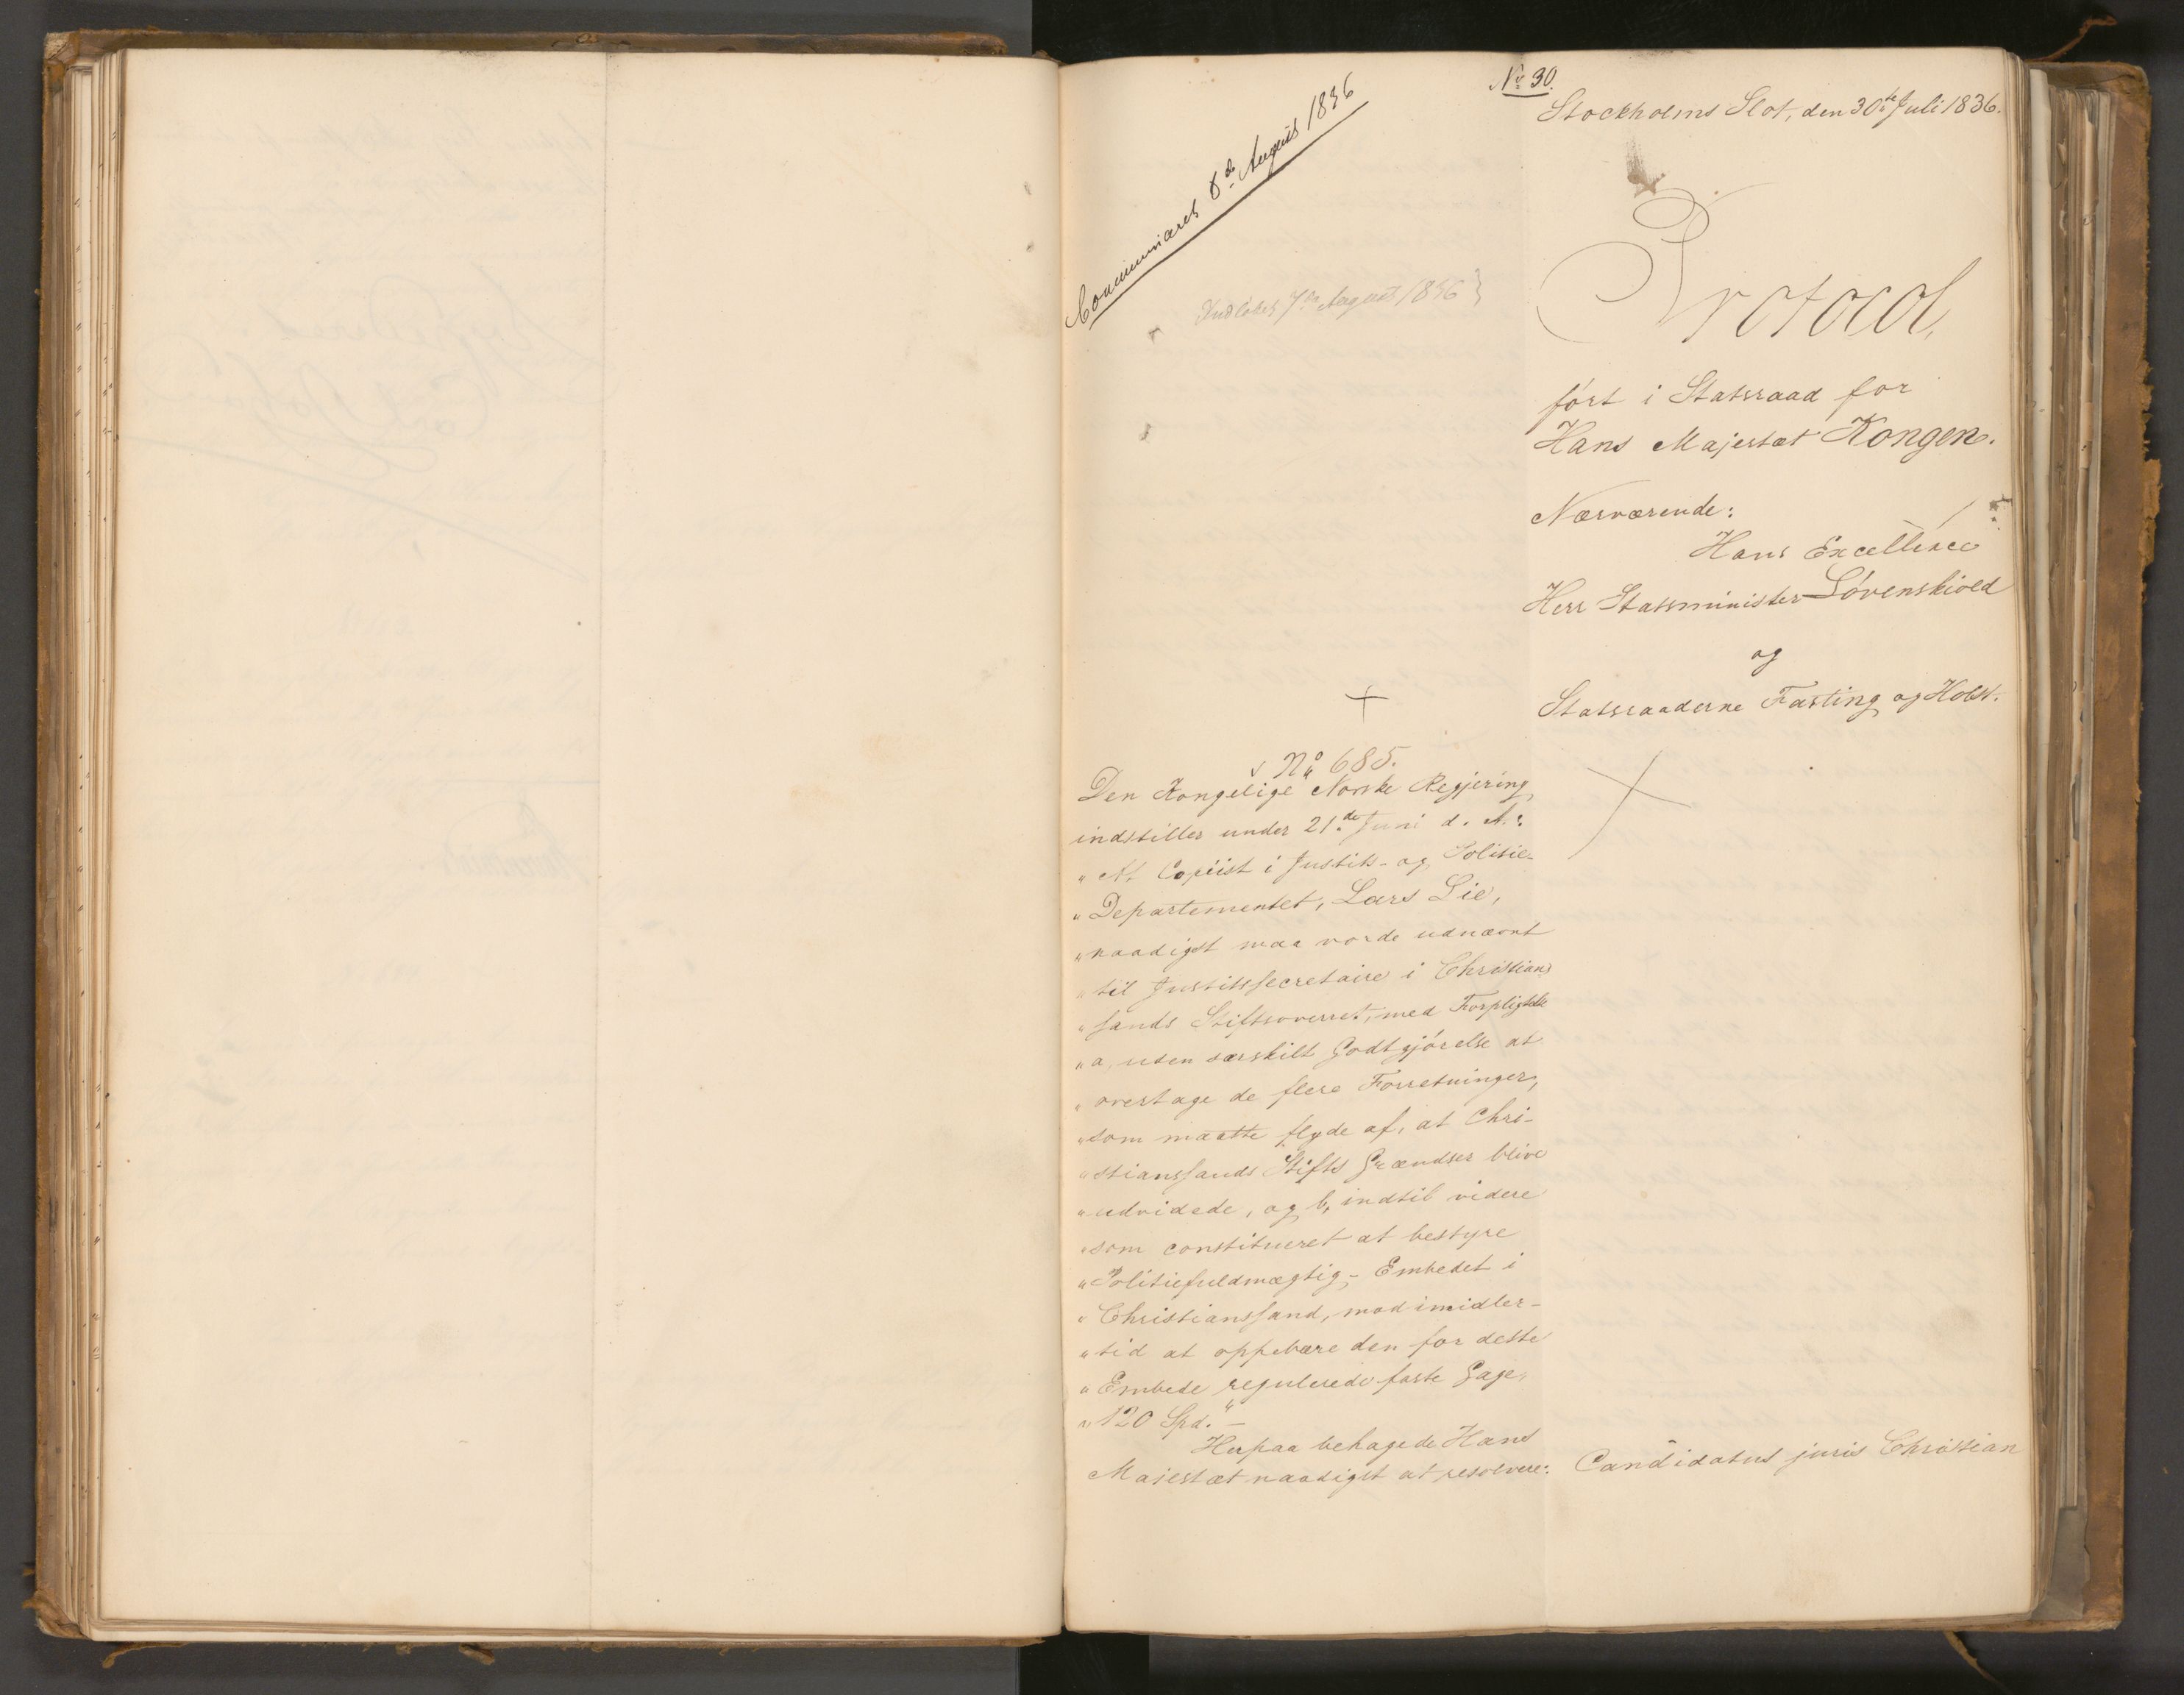 No 30.
Stockholms Slot, den 30te Juli 1836.
Communiceres 8de August 1836
Indløbet 7de August 1836
Protocol,
ført i Statsraad for
Hans Majestæt Kongen.
Nærværende:
Hans Excellence
Herr Statsminister Løvenskiold
og
Statsraaderne Fasting og Holst.
No 685.
Den Kongelige Norske Regjering
indstiller under 21de Juni d. A.:
"At Copiist i Justits- og Politie-
"Departementet, Lars Lie,
"naadigst maa vorde udnævnt
"til Justitssecretaire i Christians
"sands Stiftsoverret, med Forpligtelse
"a, uden særskilt Godtgjørelse at
"overtage de flere Forretninger,
"som maatte flyde af, at Chri-
"stianssands Stifts Grændser blive
"udvidede, og b, indtil videre
"som constitueret at bestyre
"Politiefuldmægtig-Embedet i
"Christianssand, mod imidler-
"tid at oppebære den for dette
"Embede regulerede faste Gage,
"120 Spd." —
Herpaa behagede Hans
Majestæt naadigst at resolvere:
Candidatus juris Christian